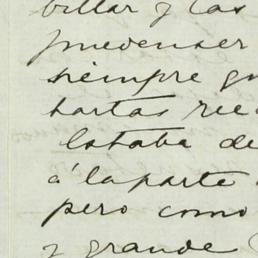 billar y las
pueden ser
siempre qu
hartas rec
Estaba de
á la parte
pero como
y grande